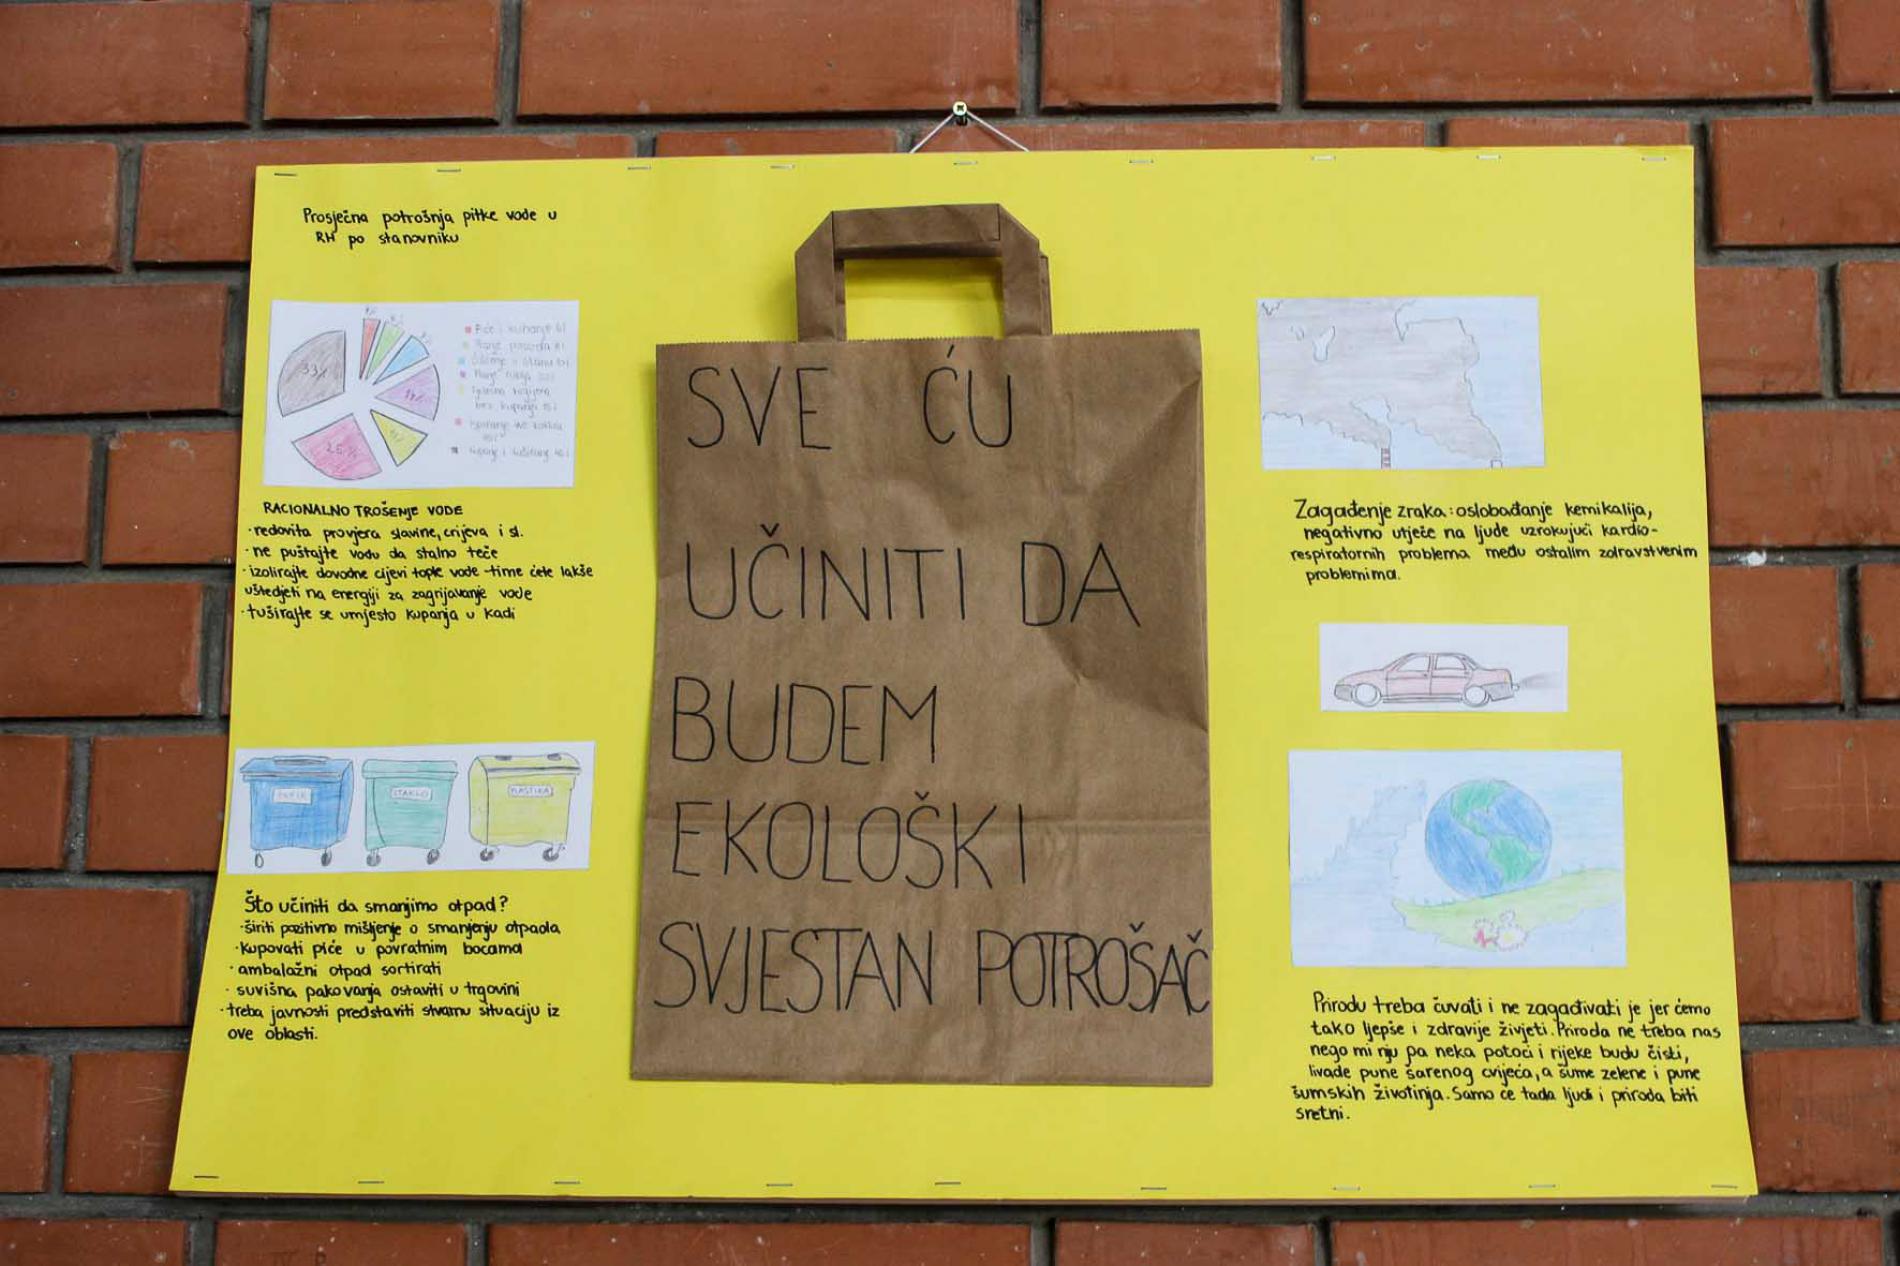 Prosječna potrošnja pitke vode u
RH po stanovniku
33%
25%
14%
Piće i kuhanje
Pranje posuđa
RACIONALNO TROŠENJE VODE
·redovita provjera slavine, crijeva i sl.
·ne puštajte vodu da stalno teče
·izolirajte dovodne cijevi tople vode-time ćete lakše
uštedjeti na energiji za zagrijavanje vode
·tuširajte se umjesto kupanja u kadi
PAPIR
STAKLO
PLASTIKA
Što učiniti da smanjimo otpad?
·širiti pozitivno mišljenje o smanjenju otpada
·kupovati piće u povratnim bocama
·ambalažni otpad sortirati
·suvišna pakovanja ostaviti u trgovini
·treba javnosti predstaviti stvarnu situaciju iz
ove oblasti.
SVE ĆU
UČINITI DA
BUDEM
EKOLOŠKI
SVJESTAN POTROŠAČ
Zagađenje zraka: oslobađanje kemikalija,
negativno utječe na ljude uzrokujući kardio-
respiratornih problema među ostalim zdravstvenim
problemima.
Prirodu treba čuvati i ne zagađivati je jer ćemo
tako ljepše i zdravije živjeti. Priroda ne treba nas
nego mi nju pa neka potoci i rijeke budu čisti,
livade pune šarenog cvijeća, a šume zelene i pune
šumskih životinja. Samo će tada ljudi i priroda biti
sretni.